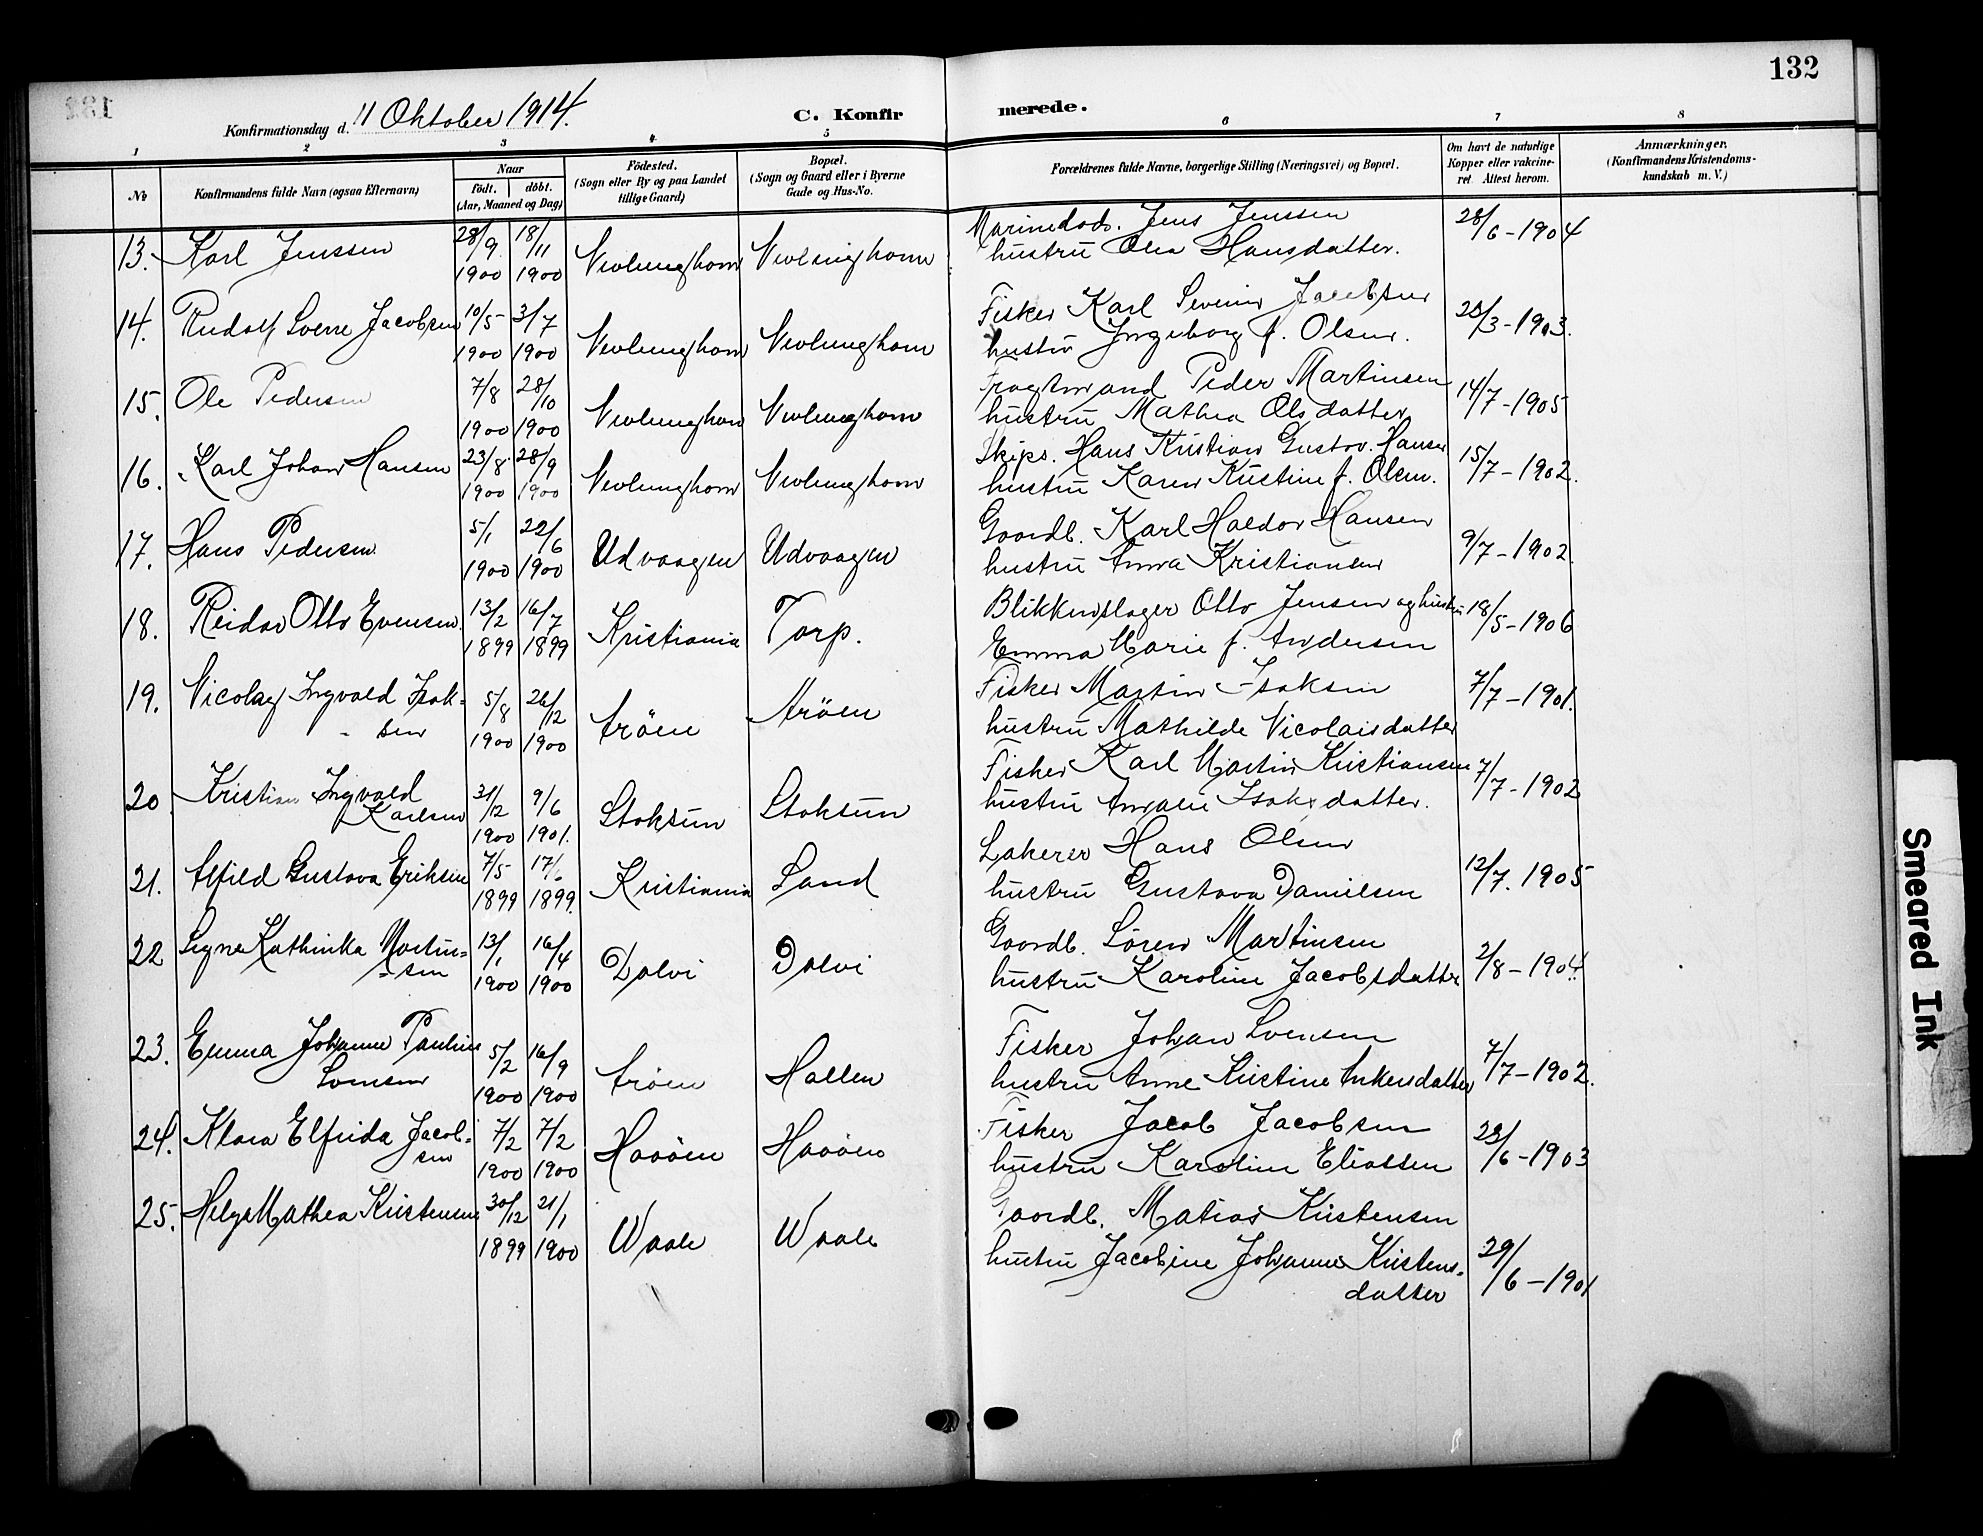 132
Konfirmationsdag d. 11 Oktober 1914.
C. Konfirmerede.
1 2 3 4 5 6 7 8
No
Konfirmandens fulde Navn (ogsaa Efternavn)
Naar
født. døbt.
(Aar, Maaned og Dag)
Fødested.
(Sogn eller By og paa Landet
tillige Gaard)
Bopæl.
(Sogn og Gaard eller i Byerne
Gade og Hus-No.
Forældrenes fulde Navne, borgerlige Stilling (Næringsvei) og Bopæl.
Om havt de naturlige
Kopper eller vakcine-
ret Attest herom.
Anmærkninger.
(Konfirmandens Kristendoms-
kundskab m. V.)
13. Karl Jenssen 28/9 1900 18/11 1900 Nevlunghavn Nevlunghavn Jens Jenssen
hustru Olea Hansdatter. 28/6-1904
14. Rudolf Sverre Jacobsen 10/5 1900 3/7 1900 Nevlunghavn Nevlunghavn Fisker Karl Severin Jacobsen
hustru Ingeborg f. Olsen. 28/3-1903.
15. Ole Pedersen 7/8 1900 28/10 1900 Nevlunghavn Nevlunghavn Fragtmand Peder Martinsen
hustru Mathea Olsdatter 14/7-1905
16. Karl Johan Hansen 23/8 1900 28/9 1900 Nevlunghavn Nevlunghavn Skips. Hans Kristian Gustav Hansen
hustru Karen Kristine f. Olsen. 15/7-1902.
17. Hans Pedersen 5/1 1900 22/6 1900 Udvaagen Udvaagen Gaardb. Karl Haldor Hansen
hustru Anna Kristiansen 9/7-1902.
18. Reidar Otto Evensen. 13/2 1899 16/7 1899 Kristiania Torp. Blikkenslager Otto Jensen og hustru
Emma Marie f. Andersen 18/5-1906
19. Nicolay Ingvald Isak-
sen 5/8 1900 26/12 1900 Arøen Arøen Fisker Martin Isaksen
hustru Mathilde Nicolaisdatter 7/7-1901.
20 Kristian Ingvald
Karlsen 31/12 1900 9/6 1901. Stoksun Stoksun Fisker Karl Martin Kristiansen
hustru Amalie Isaksdatter. 7/7-1902
21. Alfild Gustava Eriksen 7/5 1899 17/6 1899. Kristiania Sand Lakerer Hans Olsen
hustru Gustava Danielsen 12/7.1905
22 Signe Kathinka Martin=
=sen 13/1 1900 16/4 1900 Dalvi Dalvi Gaardb. Søren Martinsen
hustru Karoline Jacobsdatter 2/8-1904.
23. Emma Johanne Pauline
Svensen 5/2 1900 16/9 1900 Arøen Hallen Fisker Johan Svensen
hustru Anne Kristine Ankersdatter 7/7-1902.
24. Klara Elfrida Jacob-
sen 7/2 1900 7/2 1900 Haaøen Haaøen Fisker Jacob Jacobsen
hustru Karoline Eliassen 23/6-1903
25. Helga Mathea Kristensen 30/12 1899 21/1 1900 Waale Waale Gaardb. Matias Kristensen
hustru Jacobine Johanne Kristens-
datter 29/6-1901
Smeared Ink